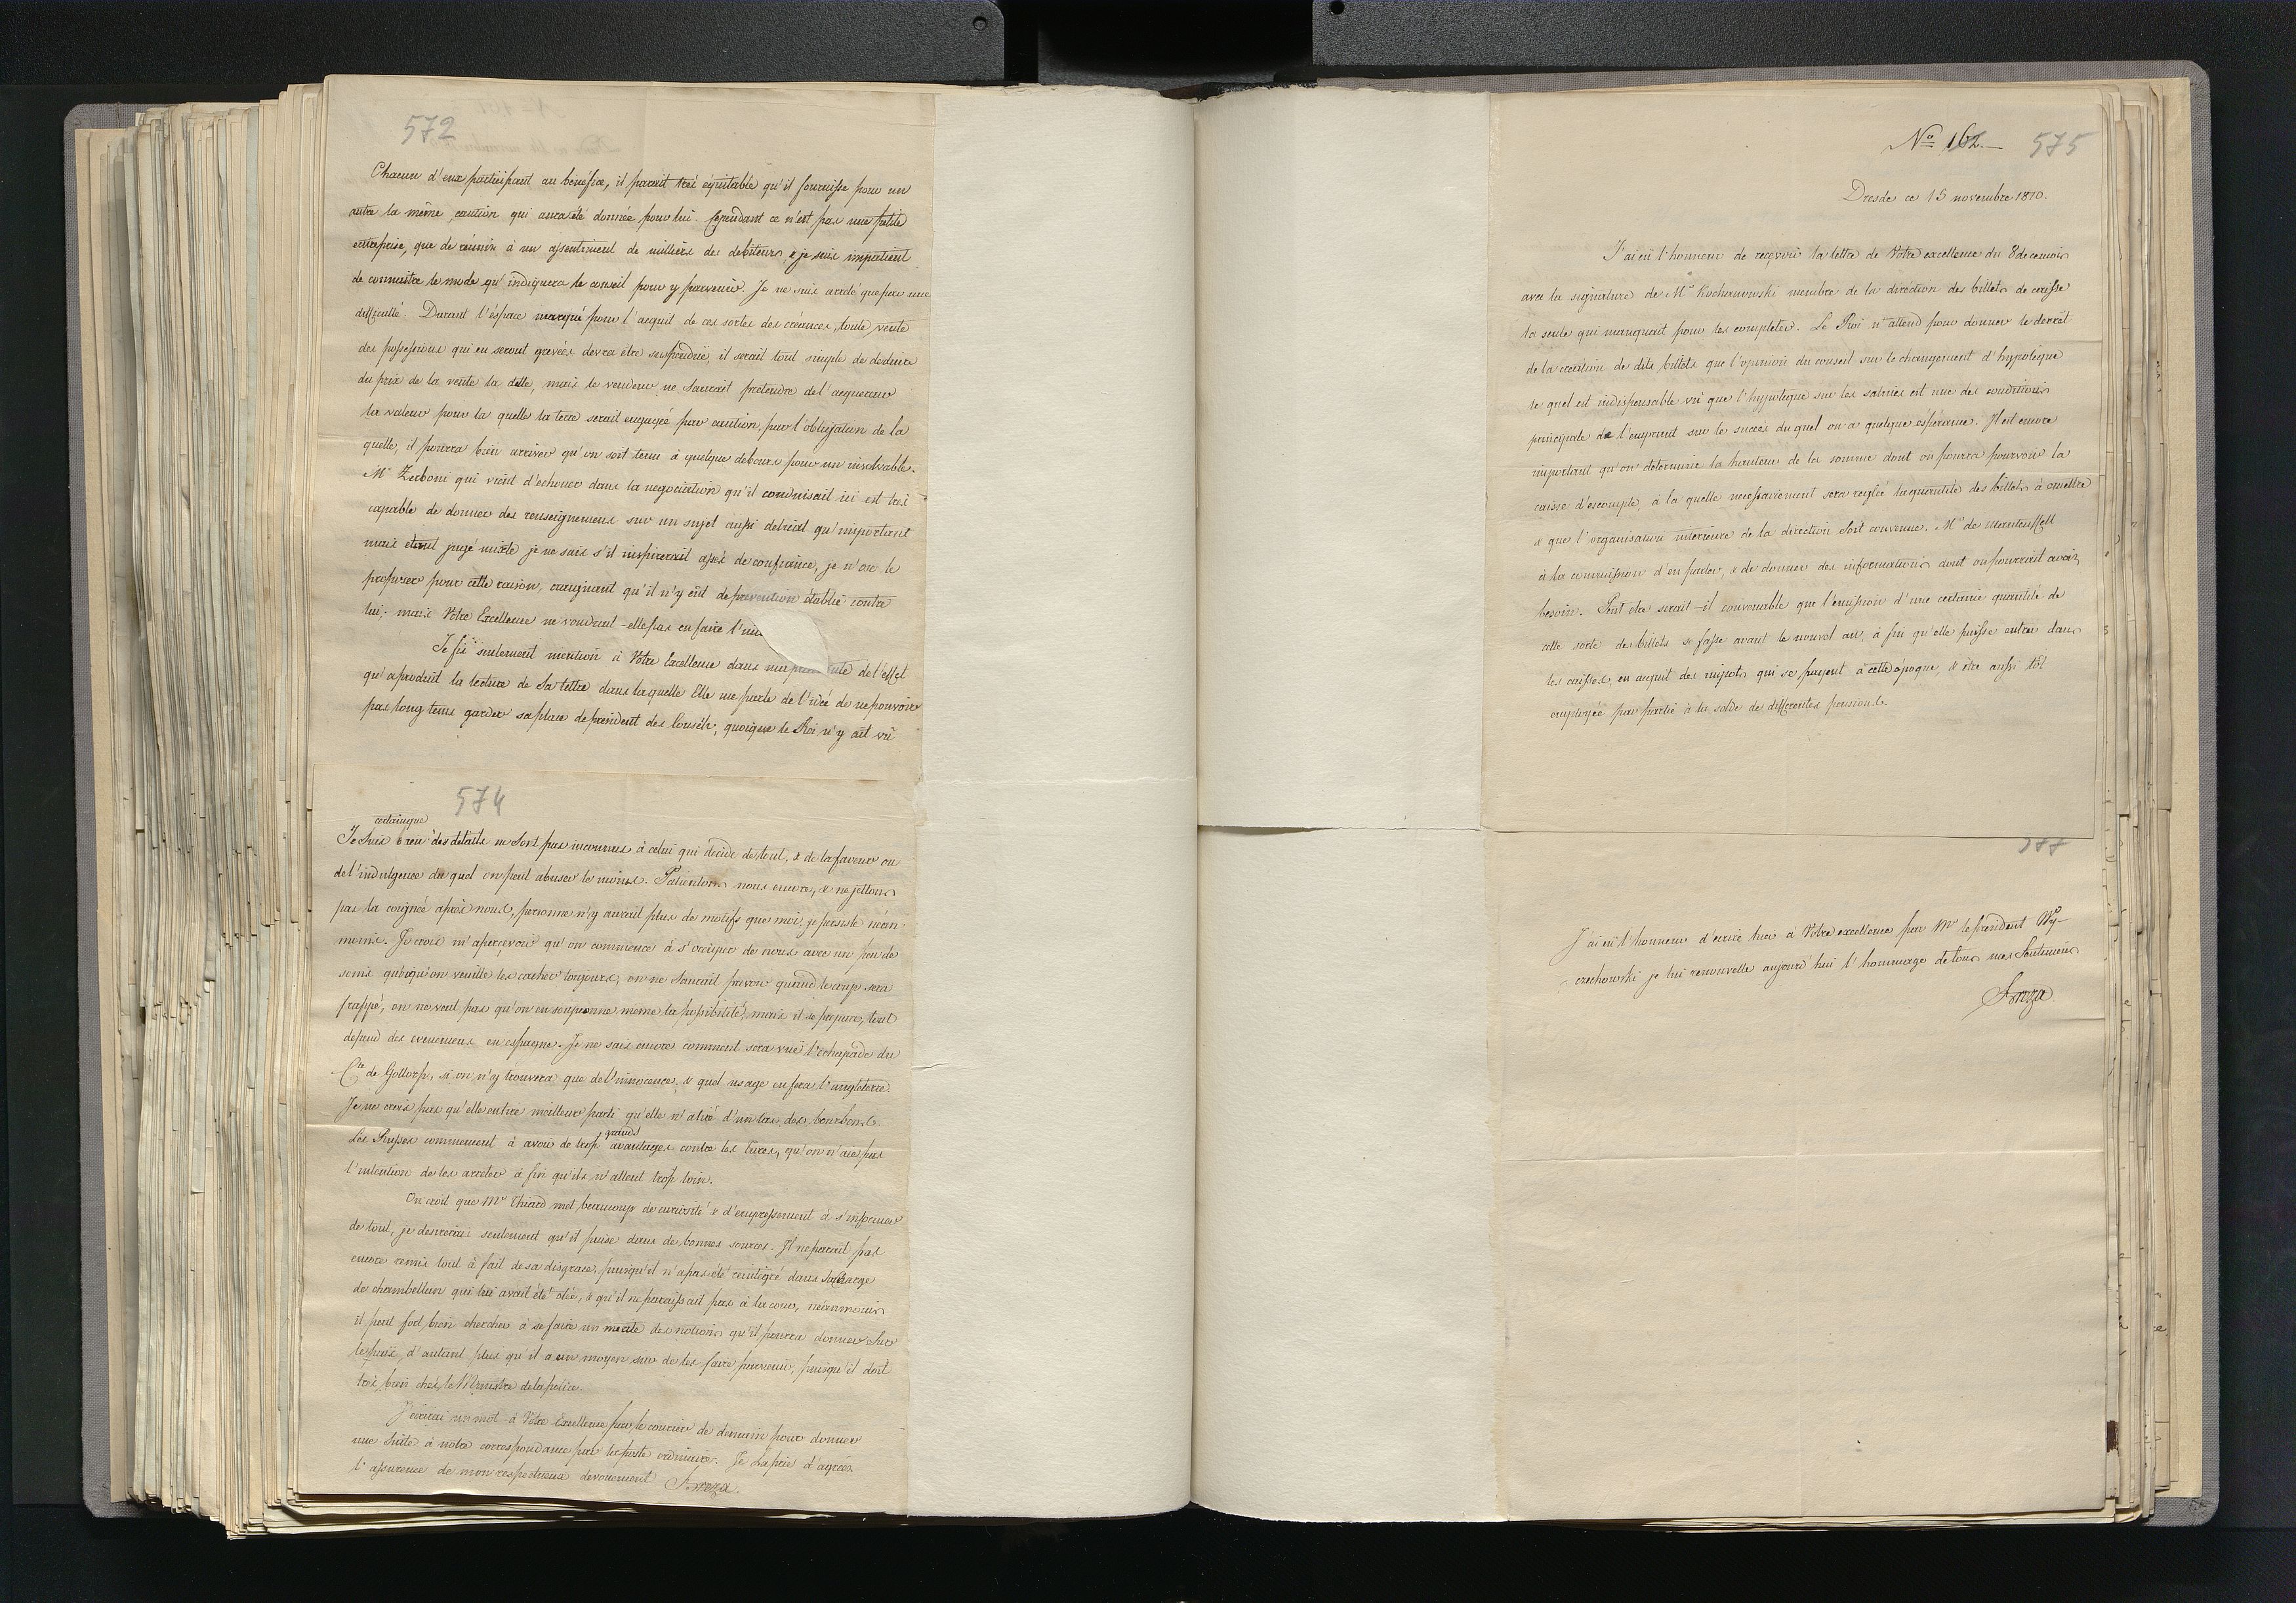 572
Chacun d'eux participant au bénéfice, il parait très équitable qu'il fournisse pour un
autre la même caution qui aura été donnée pour lui. Cependant ce n'est pas une petite
entreprise, que de réunir à un assentiment de milliers des debiteurs, & je suis impatient
de connaitre le mode qu'indiquera le conseil pour y parvenir. Je ne suis arreté que par une
difficulté. Durant l'éspace marqué pour l'acquit de ces sortes des créances, toute vente
des possessions qui en seront grevées devra etre suspendüe, il serait tout simple de deduire
du prix de la vente la dette, mais le vendeur ne saurait pretendre de l'acquereur
la valeur pour la quelle la terre serait engagée par caution, par l'obligation de la
quelle, il pourra bien arriver qu'on soit tenu à quelque debours pour un insolvable.
Mr Zerboni qui vient d'echouer dans la negociation qu'il conduisait ici est très
capable de donner des renseignemens sur un sujet aussi delicat qu'important
mais etant jugé mixte je ne sais s'il inspirerait assés de confiance, je n'ose le
proposer pour cette raison, craignant qu'il n'y eût de prevention établie contre
lui; mais Votre Excellence ne voudrait-elle pas en faire l'
Je fis seulement mention à Votre Excellence dans ma de l'effet
qu'a produit la lecture de Sa lettre dans laquelle Elle me parle de l'idée de ne pouvoir
pas long tems garder sa place de president des Conseils, quoique le Roi n'y ait vû
574
certain que
Je suis bien des details ne sont pas inconnus à celui qui decide de tout, & de la faveur ou
de l'indulgence du quel on peut abuser le moins. Patientons nous encore, & ne jettons
pas la coignée après nous, personne n'y aurait plus de motifs que moi, je persiste néan-
moins. Je crois m'apercevoir qu'on commence à s'occuper de nous avec un peu de
soins quoiqu'on veuille les cacher toujours, on ne saurait prevoir quand le coup sera
frappé, on ne veut pas qu'on en soupçonne même la possibilité, mais il se prepare, tout
depend des evenemens en espagne. Je ne sais encore comment sera vuë l'echapade du
Cte de Gottorp, si on n'y trouvera que de l'innocence, & quel usage en fera l'angleterre.
Je ne crois pas qu'elle en tire meilleur parti qu'elle n'a tiré d'un tas des bourbons.
grands
Les Russes commencent à avoir de trop avantages contre les Turcs, qu'on n'aie pas
l'intention de les arreter à fin qu'ils n'aillent trop loin.
On croit que Mr Thiard met beaucoup de curiosité & d'empressement à s'informer
de tout, je desirerais seulement qu'il puise dans de bonnes sources. Il ne parait pas
encore remis tout à fait de sa disgrace, puisqu'il n'a pas été reintégré dans sa charge
de chambellan qui lui avait été otée, & qu'il ne paraissait pas à la cour, néanmoins
il peut fort bien chercher à se faire un merite des notions qu'il pourra donner sur
le païs, d'autant plus qu'il a un moyen sur de les faire parvenir, puisqu'il doit
très bien chés le Ministre de la police.
J'écrirai un mot à Votre Excellence par le courier de demain pour donner
une suite à notre correspondance par la poste ordinaire. Je La prie d'agréer
l'assurence de mon respectueux devouement Breza.
No 162.— 575
Dresde ce 15 novembre 1810.
J'ai eü l'honneur de reçevoir la lettre de Votre excellence du 8 de ce mois
avec la signature de Mr Kochanowski membre de la direction des billets de caisse
la seule qui manquait pour les completer. Le Roi n'attend pour donner le decret
de la creation de dits billets que l'opinion du conseil sur le changement d'hypoteque
le quel est indispensable vû que l'hypoteque sur les salines est une des conditions
principale de l'emprunt sur le succès du quel on a quelque espérance. Il est encore
important qu'on determine la hauteur de la somme dont on pourra pourvoir la
caisse d'escompte, à la quelle necessairement sera reglée la quantité des billets à emettre
& que l'organisation interieure de la direction soit convenue. Mr de Manteuffell
a la commission d'en parler, & de donner des informations dont on pourrait avoir
besoin. Peut etre serait-il convenable que l'emission d'une certaine quantité de
cette sorte des billets se fasse avant le nouvel an, à fin qu'elle puisse entrer dans
les caisses, en acquit des impots qui se payent à cette epoque, & etre aussi tôt
employée par partie à la solde de differentes pensions.
577
J'ai eü l'honneur d'ecrire hier à Votre excellence par Mr le president Wy-
czechowski je lui renouvelle aujourd'hui l'hommage de tous mes Sentimens
Breza.